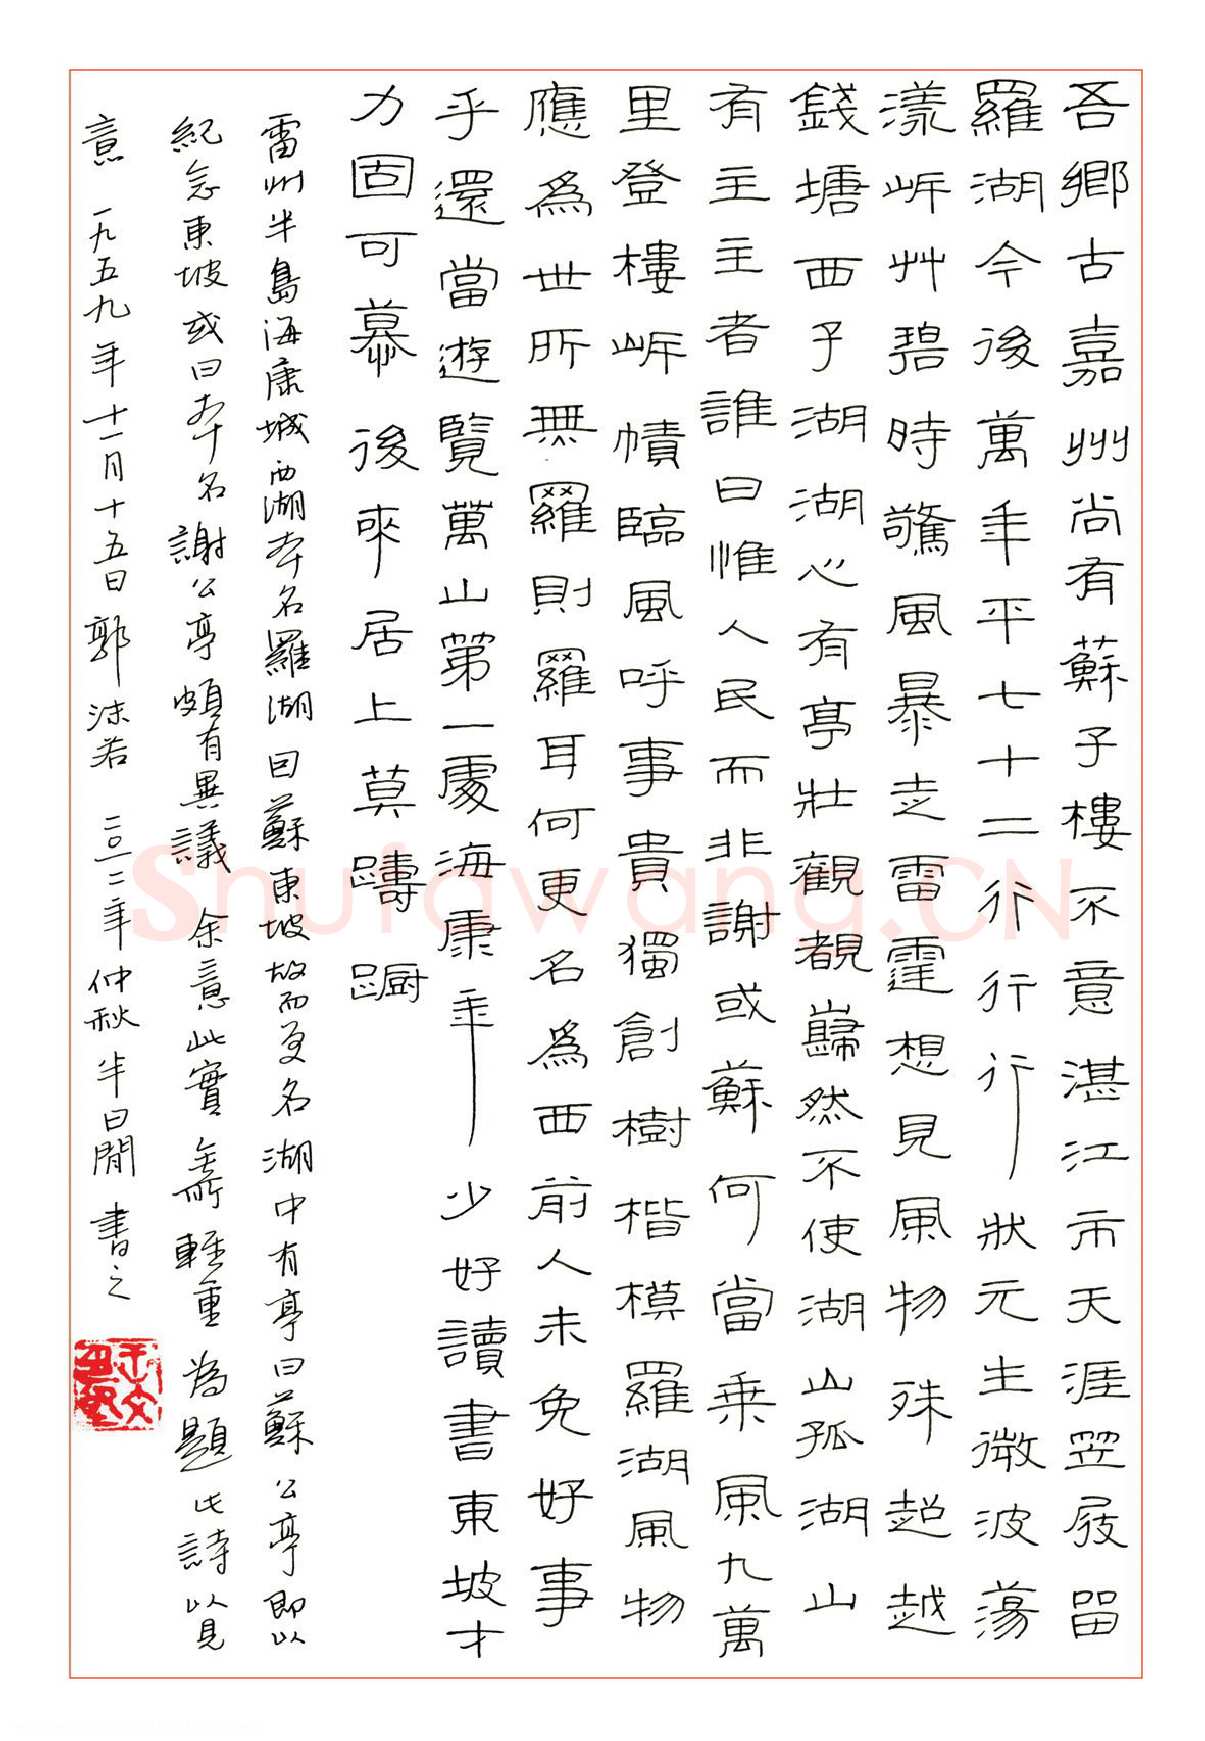 吾鄉古嘉州尚有蘇子樓不意湛江市天涯笠屐留
羅湖今後萬年平七十二行行行狀元生微波蕩
漾岍艸碧時驚風暴走雷霆想見風物殊超越
錢塘西子湖湖心有亭壯觀覩巋然不使湖山孤湖山
有主主者誰曰惟人民而非謝或蘇何當乘風九萬
里登樓岍幘臨風呼事貴獨創樹楷模羅湖風物
應為世所無羅則羅耳何更名為西前人未免好事
乎還當遊覽萬山第一處海康年少好讀書東坡才
力固可慕後來居上莫躊躕
雷州半島海康城西湖本名羅湖回蘇東坡故而更名湖中有亭曰蘇公亭即以
紀念東坡或曰本名謝公亭頗有異議余意此實無所輕重為題此詩以見
意 一九五九年十一月十五日郭沫若 二〇一二年仲秋半日閒書之
Shufawang.CN